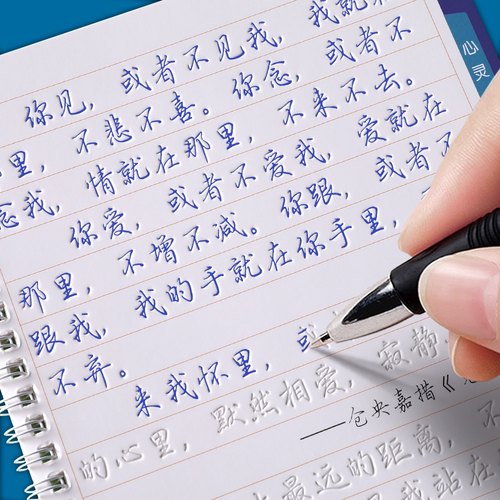 你见，或者不见我，我就
里，不悲不喜。你念，或者不
念我，情就在那里，不来不去。
你爱，或者不爱我，爱就在
那里，不增不减。你跟，或者不
跟我，我的手就在你手里，
不弃。
来我怀里，或
的心里，默然相爱，寂静
——仓央嘉措《
最远的距离，不
我站在
心灵